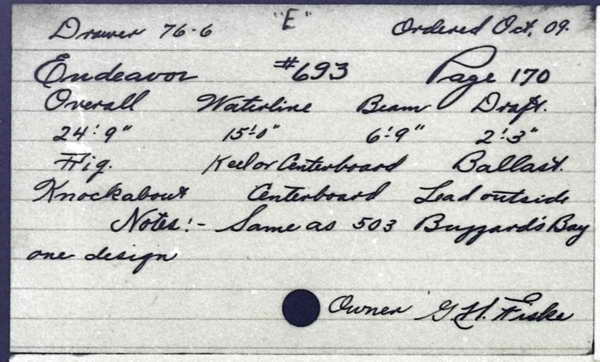 Drawer 76-6 "E" Ordered Oct, 09.
Endeavor #693 Page 170
Overall Waterline Beam Draft.
24'9" 15'0" 6'9" 2'3"
Rig. Keel or Centerboard Ballast.
Knockabout Centerboard Lead outside
Notes:- Same as 503 Buzzard's Bay
one design
Owner G.H. Fiske